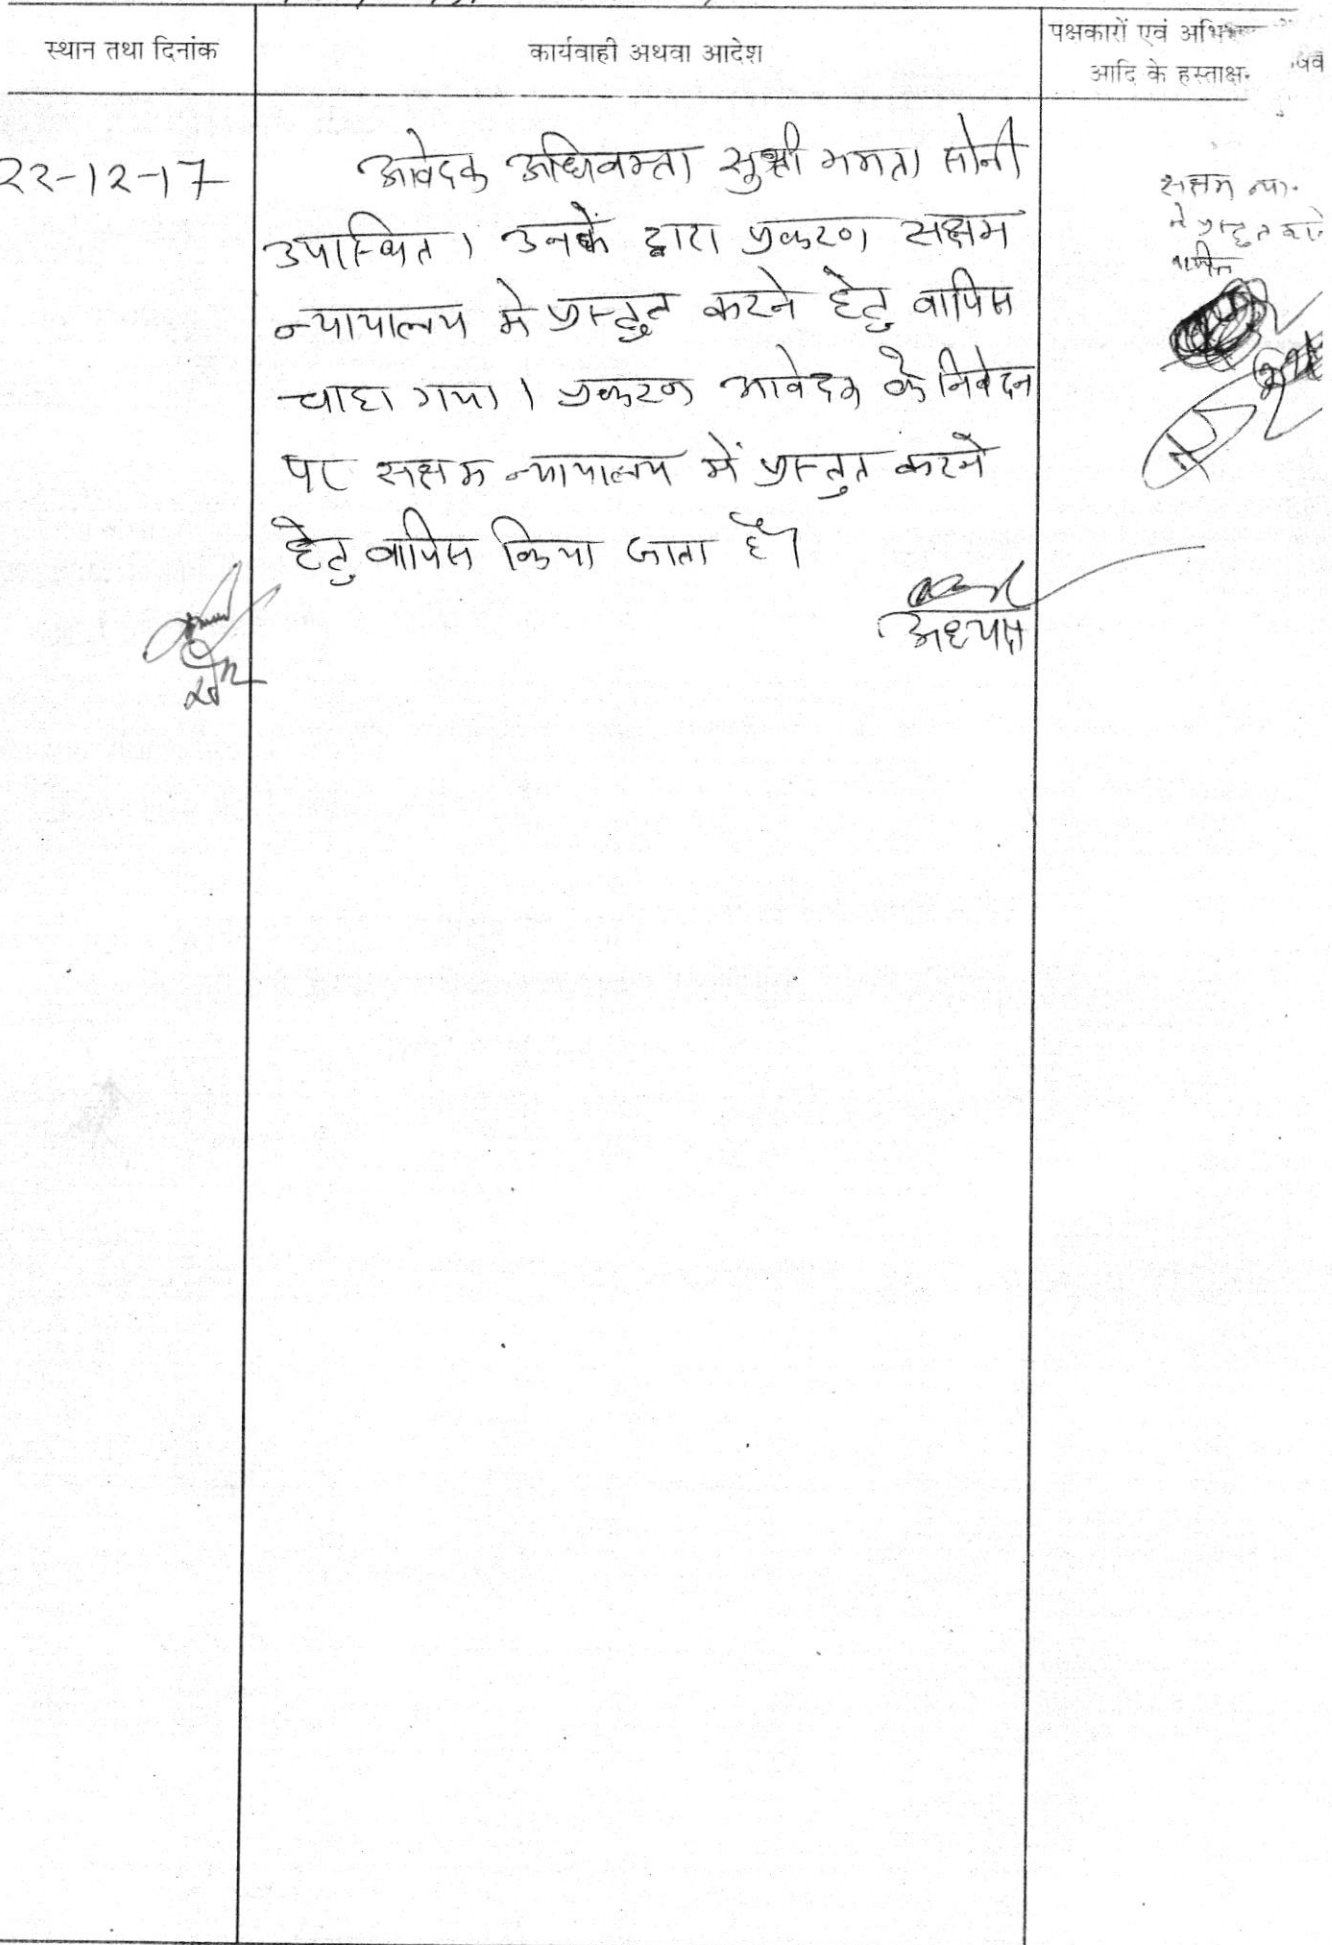 स्थान तथा दिनांक
कार्यवाही अथवा आदेश
पक्षकारों एवं
आदि के
22-12-17
आवेदक अधिवक्ता सुश्री ममता सोनी
उपास्थित। उनके द्वारा प्रकरण सक्षम
न्यायालय मे प्रस्तुत करने हेतु वापिस
चाहा गया। प्रकरण आवेदक के निवेदन
पर सक्षम न्यायालय में प्रस्तुत करने
हेतु वापिस किया जाता है।
अध्यक्ष
सक्षम न्या.
मे प्रस्तुत